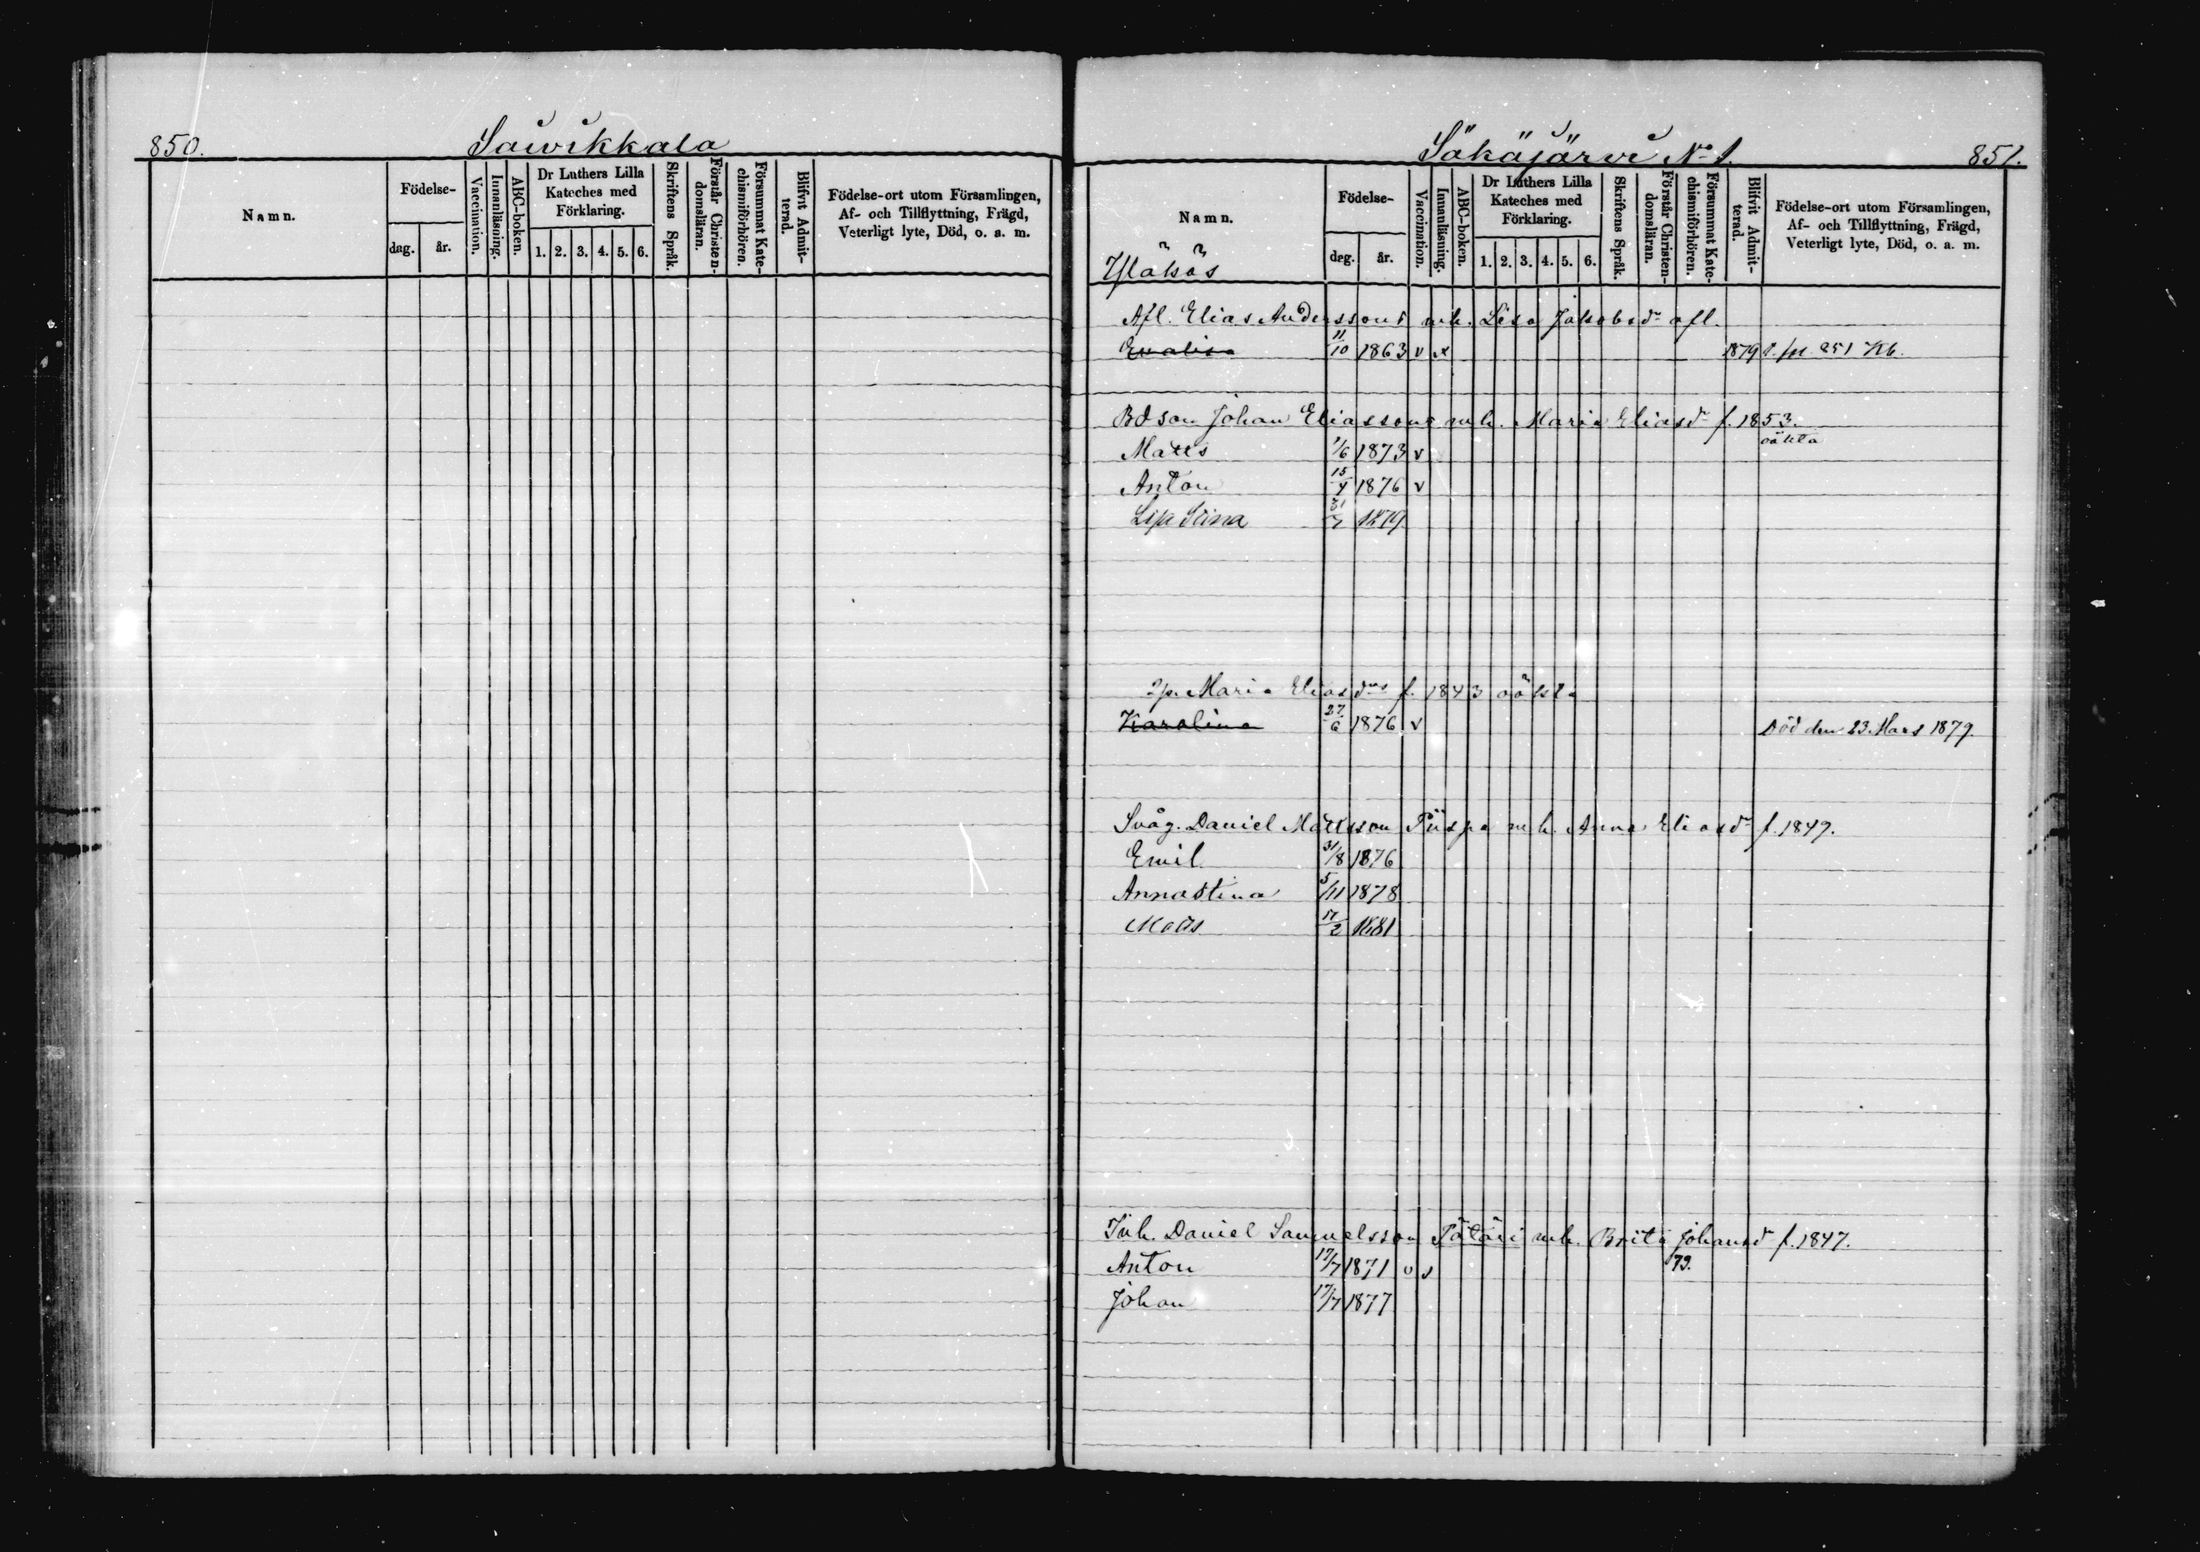 850.
Sawikkala
Namn.
Födelse-
dag.
år.
Vaccination.
Innanläsning.
ABC-boken.
Dr Luthers Lilla
Kateches med
Förklaring.
1. 2. 3. 4. 5. 6.
Skriftens Språk.
Förstår Christen-
domsläran.
Försummat Kate-
chismiförhören.
Blifvit Admit-
terad.
Födelse-ort utom Församlingen,
Af- och Tillflyttning, Frägd,
Veterligt lyte, Död, o. a. m.
Säkäjärvi No 1.
851.
Namn.
Födelse-
dag.
år.
Vaccination.
Innanläsning.
ABC-boken.
Dr Luthers Lilla
Kateches med
Förklaring.
1. 2. 3. 4. 5. 6.
Skriftens Språk.
Förstår Christen-
domsläran.
Försummat Kate-
chismiförhören.
Blifvit Admit-
terad.
Födelse-ort utom Församlingen,
Af- och Tillflyttning, Frägd,
Veterligt lyte, Död, o. a. m.
Afl. Elias Anderssons mh. Lisa Jakobsdr afl.
Evalisa 11/10 1863 v x 1879 251
Bdson Johan Eliassons mh. Maria Eliasdr f. 1853.
oäkta
Matts 1/6 1873 v
Anton 15/4 1876 v
Lisa Stina 1879
Maria Eliasdrs f. 1843 oäkta
Karolina 27/6 1876 v Död den 23 Mars 1879.
Svåg. Daniel Mattsson Piispa mh. Anna Eliasdr f. 1849.
Emil 31/8 1876
Annastina 5/11 1878
Matts 17/2 1881
Inh. Daniel Samuelsson Pätäri mh. Brita Johansdr f. 1847.
Anton 17/7 1871 v s 79.
Johan 17/7 1877